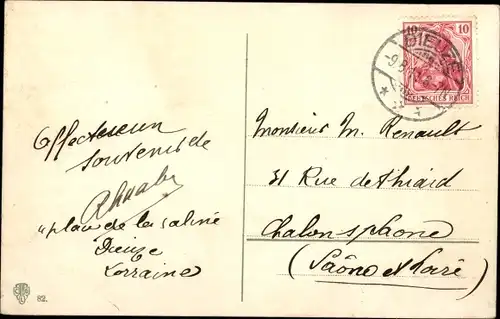 Affectueux
souvenir de
"place de la saline
Dieuze
Lorraine
82.
Monsieur M. Renault
31 Rue de Thiard
Chalon s/ Saône
(Saône et Loire)
10 10
DIEUZE
DEUTSCHES REICH